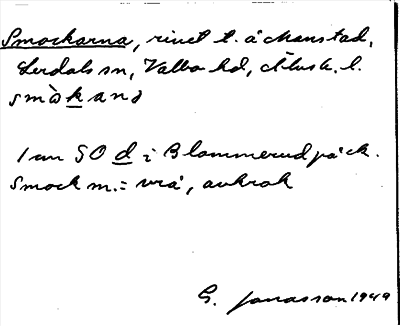 Smockarna, rivet t. å Hanstad,
Lerdals sn, Valbo hd, Älvsb. l.
smòkand
1 um SO d i Blommerud påck.
Smock m. = vrå, avkrok
G. Jonasson 1949